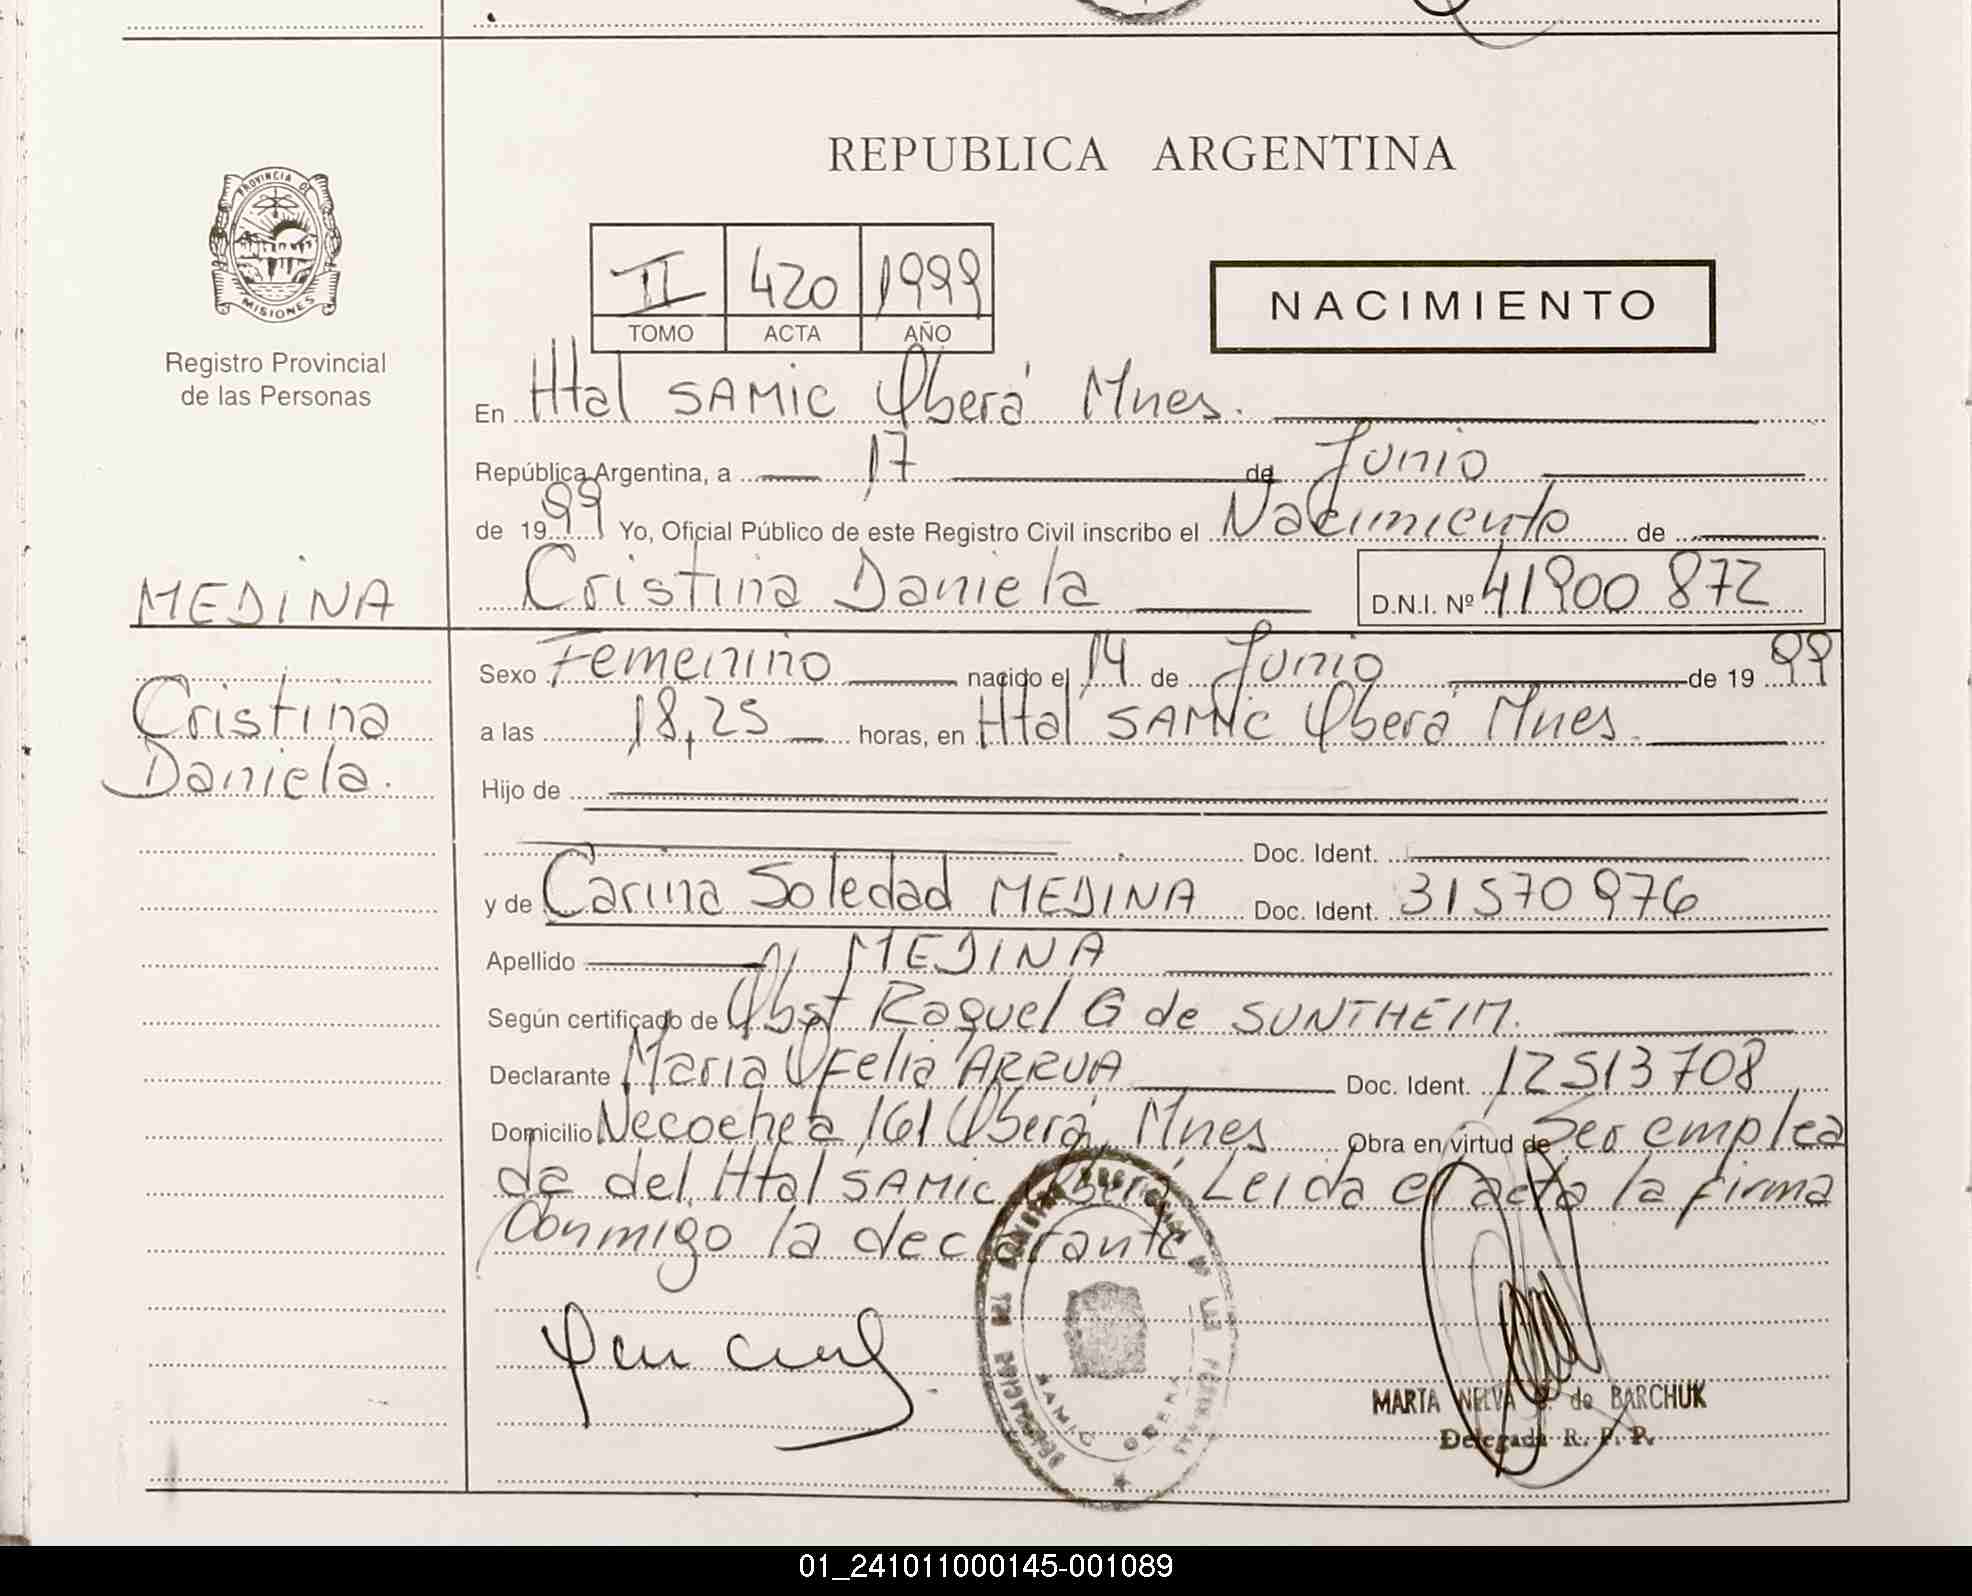 REPUBLICA ARGENTINA
PROVINCIA DE
MISIONES
Registro Provincial
de las Personas
II 420 1999
TOMO ACTA AÑO
NACIMIENTO
En Htal SAMIC Oberá Mnes.
República Argentina, a 17 de Junio
de 1999 Yo, Oficial Público de este Registro Civil inscribo el Nacimiento de
MEDINA
Cristina Daniela D.N.I. Nº 41900872
Cristina
Daniela.
Sexo Femenino nacido el 14 de Junio de 1999
a las 18,25 horas, en Htal SAMIC Oberá Mnes.
Hijo de
Doc. Ident.
y de Carina Soledad MEDINA Doc. Ident. 31570976
Apellido MEDINA
Según certificado de Obst Raquel G de SUNTHEIM.
Declarante Maria Ofelia ARRUA Doc. Ident. 12513708
Domicilio Necochea 161 Oberá, Mnes Obra en virtud de Ser emplea
da del Htal SAMIC Oberá Leida el acta la firma
Conmigo la declarante
SAMIC OBERA
MARTA NELVA de BARCHUK
Delegada R. P. P.
01_241011000145-001089